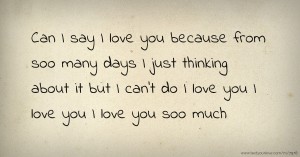 Can I say I love you because from
soo many days I just thinking
about it but I can't do i love you I
love you I love you soo much